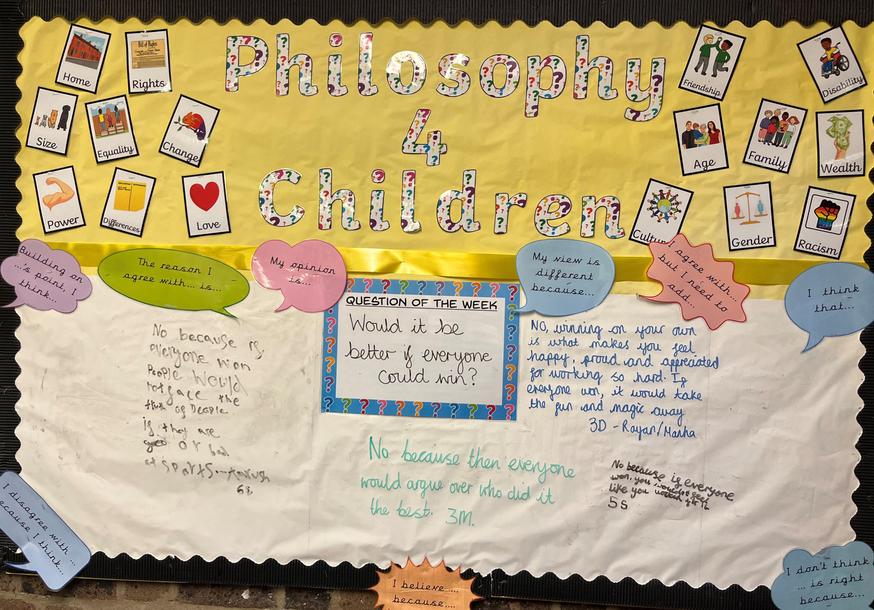 Philosophy
4
Children
Home
Bill of Rights
Rights
Size
Equality
Change
Power
Differences
Love
Friendship
Disability
Age
Family
Wealth
Gender
Racism
Building on
...'s point, I
think...
The reason I
agree with... is...
My opinion
is...
My view is
different
because...
I agree with...
but I need to
add...
I think
that...
QUESTION OF THE WEEK
Would it be
better if everyone
could win?
No because if
everyone won
People would
not face the
of People
if they are
or bad
at sports
NO, winning on your own
is what makes you feel
happy, proud and appreciated
for working so hard. If
everyone won, it would take
the fun and magic away
3D - Rayan/
No because then everyone
would argue over who did it
the best. 3M.
No because if everyone
won, you
like you
5s
I disagree with ...
because I think...
I believe ....
because....
I don't think
... is right
because...